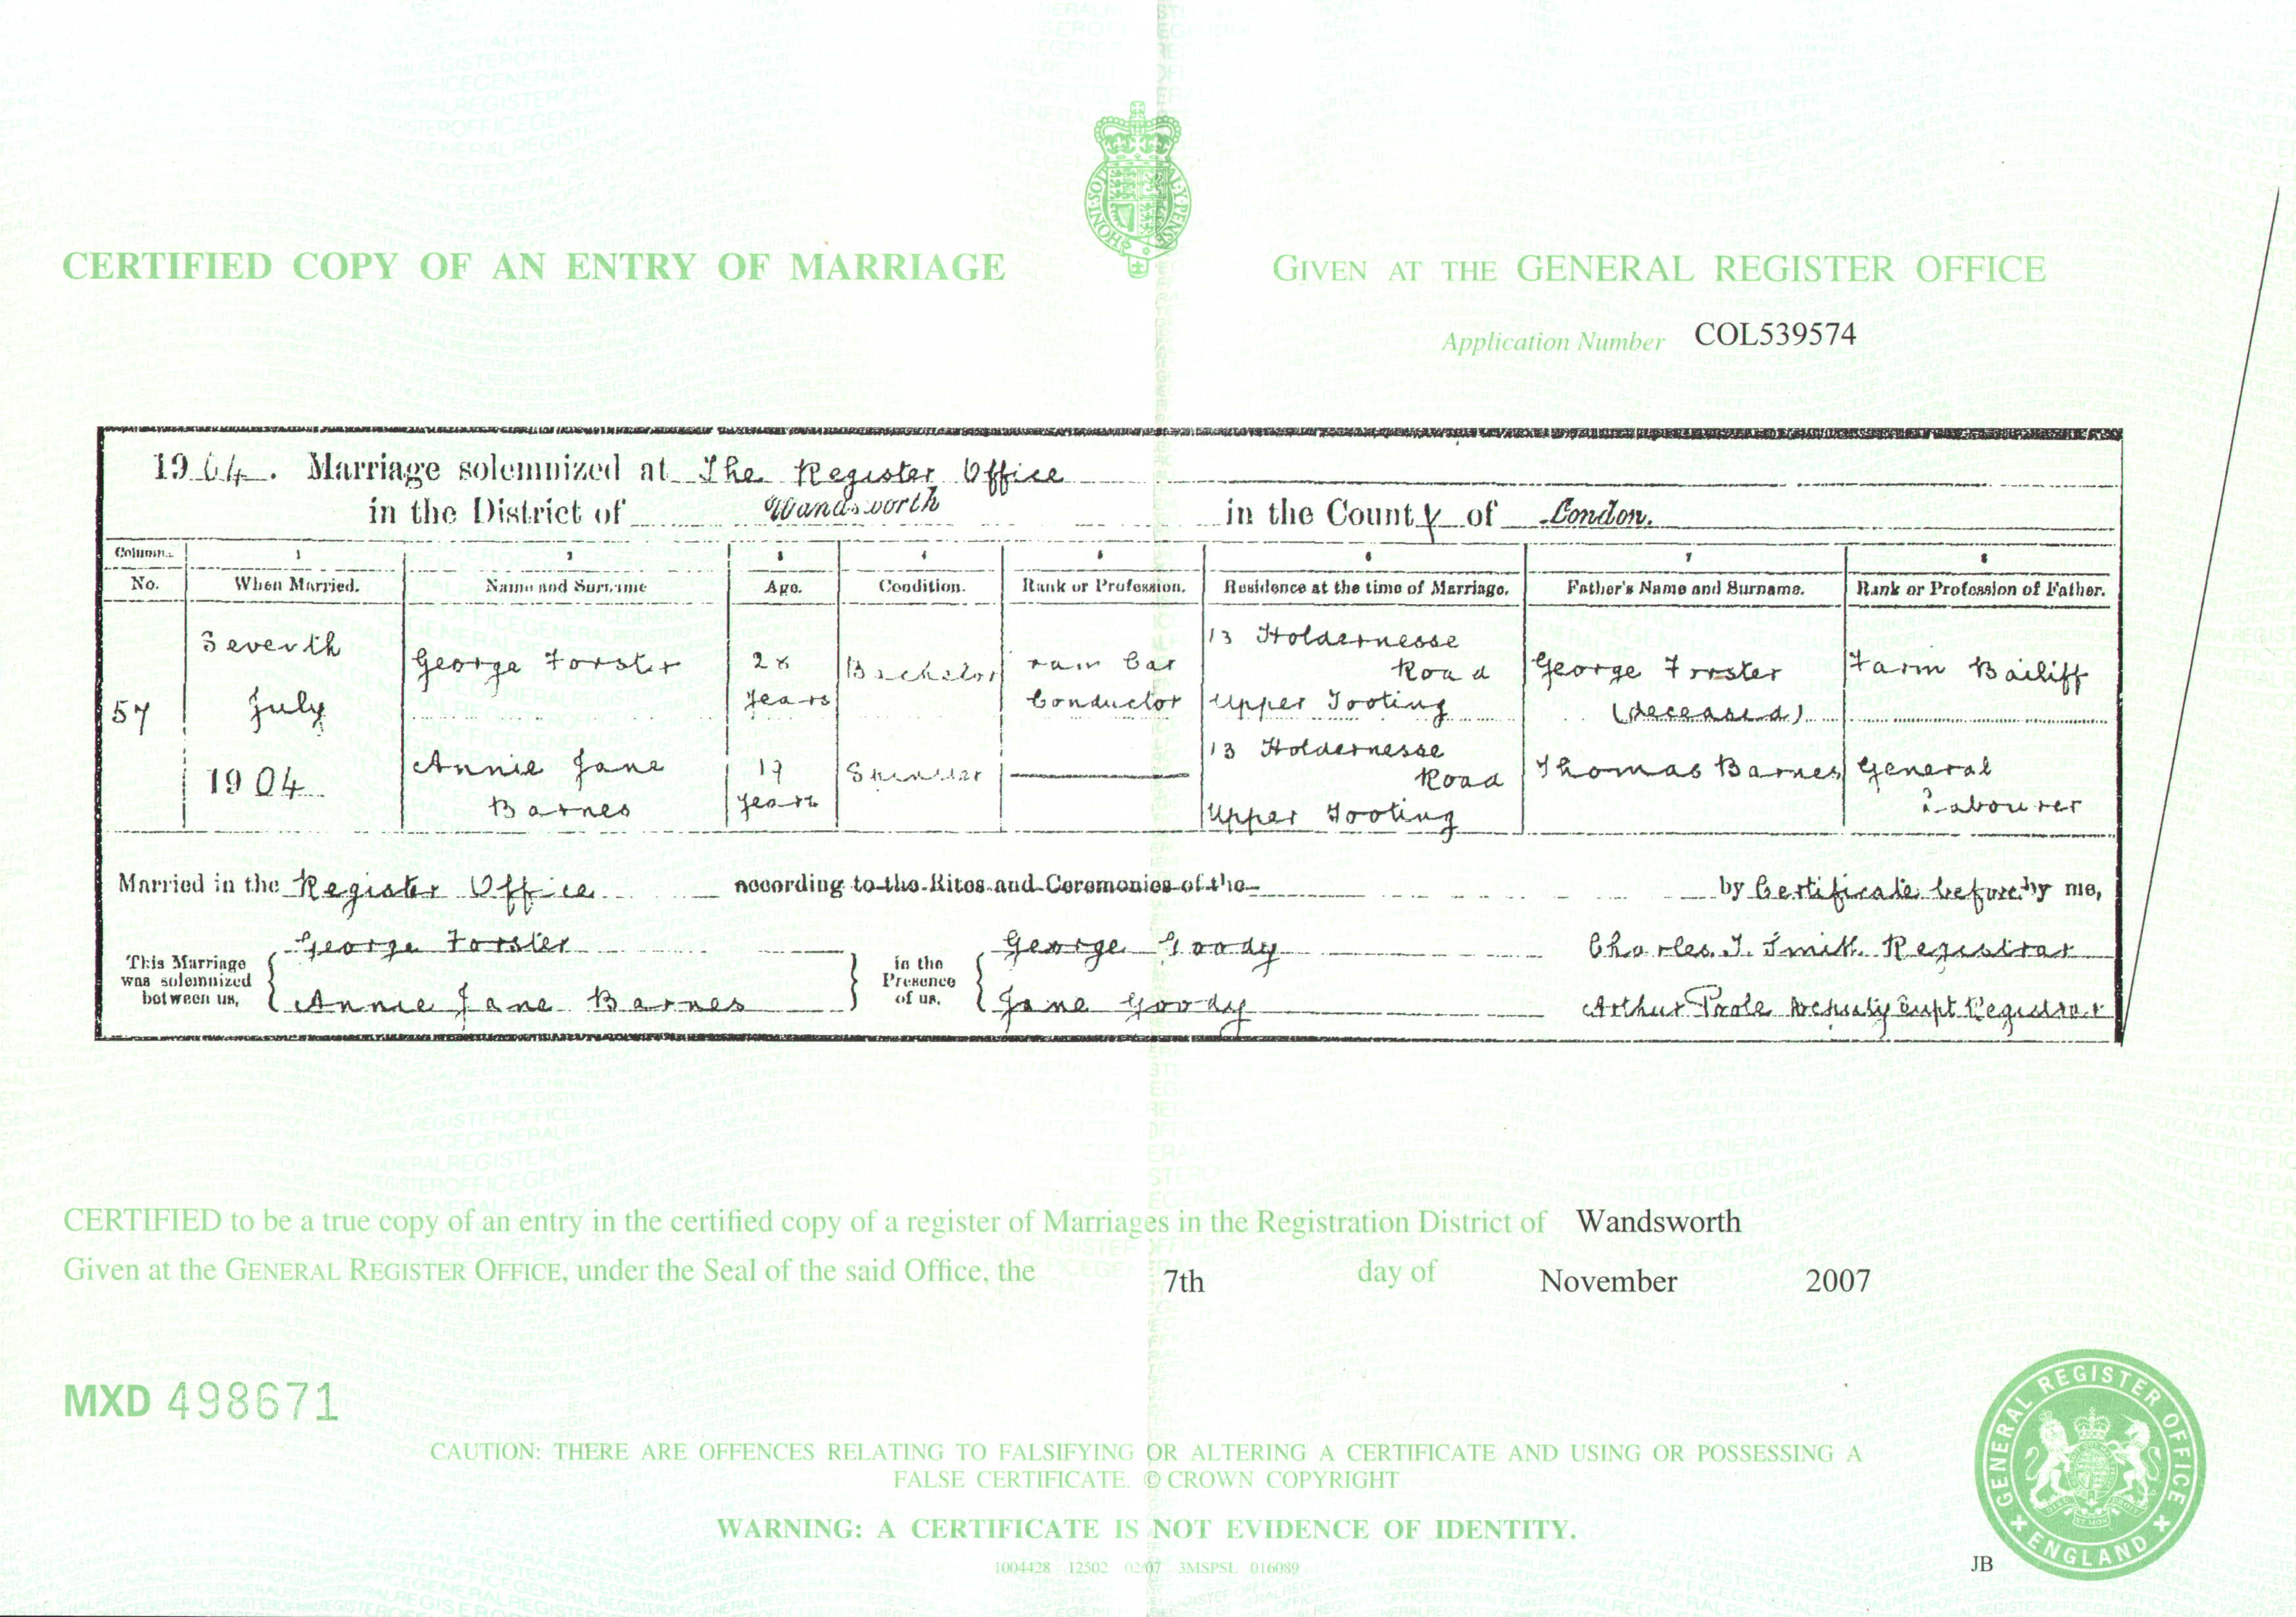 CERTIFIED COPY OF AN ENTRY OF MARRIAGE
GIVEN AT THE GENERAL REGISTER OFFICE
Application Number COL539574
1904. Marriage solemnized at The Register Office
in the District of Wandsworth in the County of London.
Column. 1 2 3 4 5 6 7 8
No. When Married. Name and Surname Age. Condition. Rank or Profession. Residence at the time of Marriage. Father's Name and Surname. Rank or Profession of Father.
57
Seventh
July
1904
George Forster
28
years
Bachelor
Car
Conductor
13 Holdernesse
Road
Upper Tooting
George Forster
(deceased)
Farm Bailiff
Annie Jane
Barnes
19
years
Spinster
13 Holdernesse
Road
Upper Tooting
Thomas Barnes
General
Labourer
Married in the Register Office according to the Rites and Ceremonies of the by Certificate before by me,
This Marriage
was solemnized
between us,
George Forster
Annie Jane Barnes
in the
Presence
of us,
George Goody
Jane Goody
Charles J. Smith Registrar
Arthur Poole Deputy Supt Registrar
CERTIFIED to be a true copy of an entry in the certified copy of a register of Marriages in the Registration District of Wandsworth
Given at the GENERAL REGISTER OFFICE, under the Seal of the said Office, the 7th day of November 2007
MXD 498671
CAUTION: THERE ARE OFFENCES RELATING TO FALSIFYING OR ALTERING A CERTIFICATE AND USING OR POSSESSING A
FALSE CERTIFICATE. © CROWN COPYRIGHT
WARNING: A CERTIFICATE IS NOT EVIDENCE OF IDENTITY.
1004428 12502 02/07 3MSPSL 016089
JB
GENERAL REGISTER OFFICE
ENGLAND